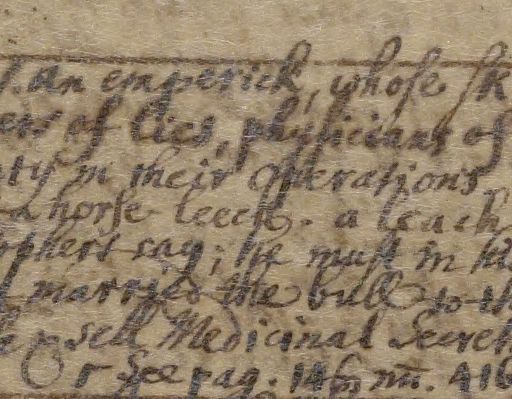 . an emperick, whose sk
ers of lies, physicians of
ty in their operations.
a horse leech. a leach
ophers say; he must in his
married the bull to th
sell Medicinal Secret
r See pag. 146 m. 416